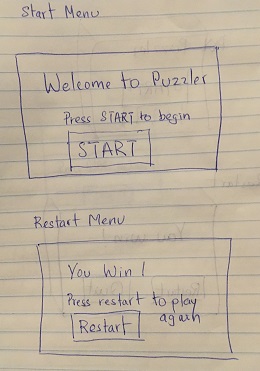 Start Menu
Welcome to Puzzler
Press START to begin
START
Restart Menu
You Win !
Press restart to play
again
Restart